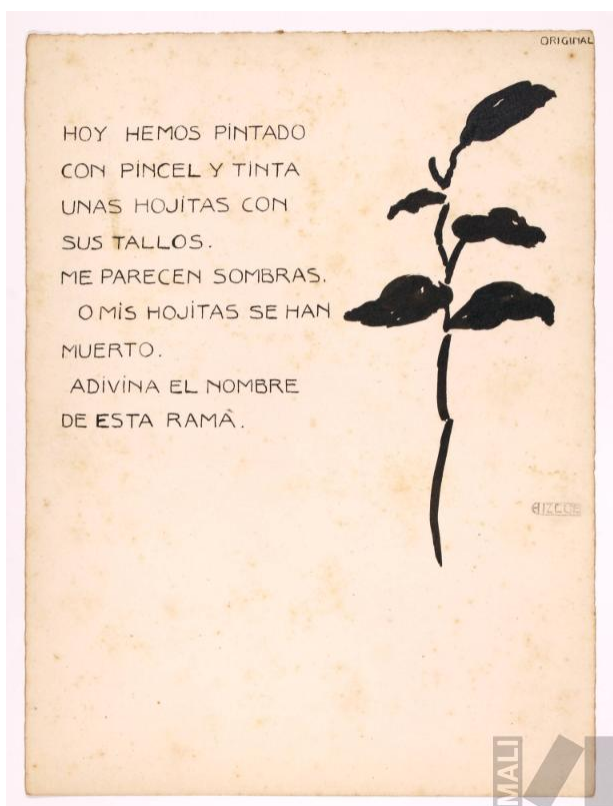 ORIGINAL
HOY HEMOS PINTADO
CON PINCEL Y TINTA
UNAS HOJITAS CON
SUS TALLOS.
ME PARECEN SOMBRAS.
O MIS HOJITAS SE HAN
MUERTO.
ADIVINA EL NOMBRE
DE ESTA RAMA.
MALI